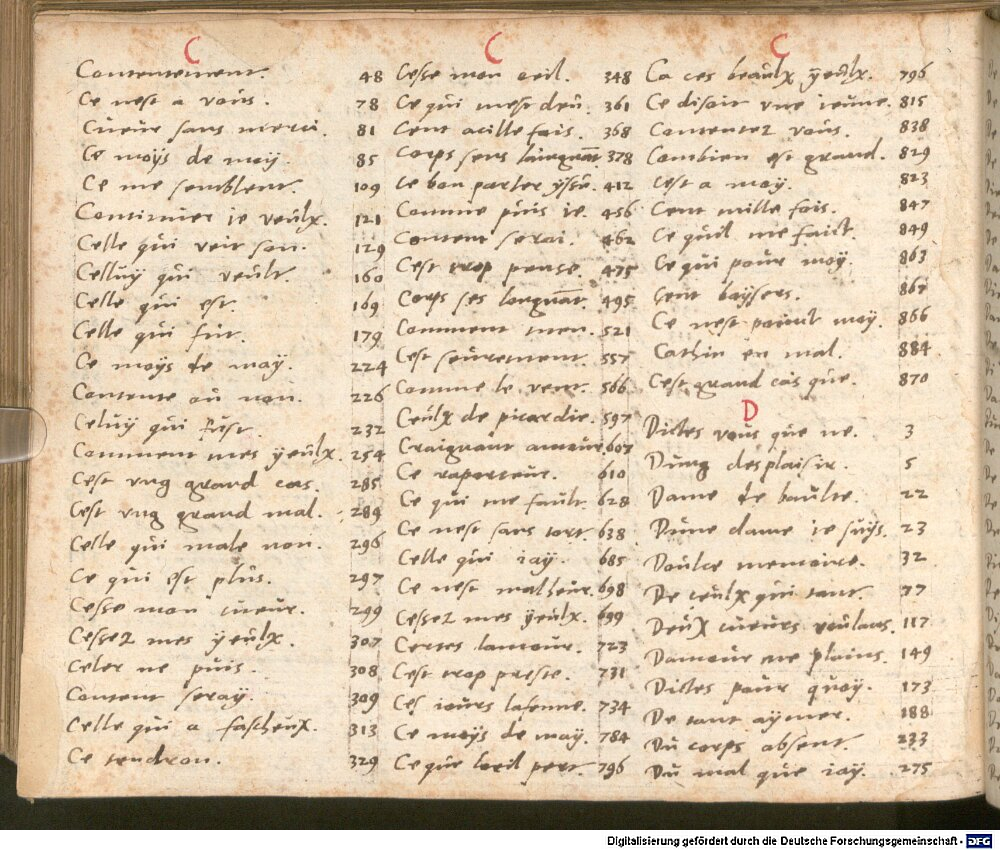 C
Contentement. 48
Ce nest a vous. 78
Cueur sans merci. 81
Ce moys de may. 85
Ce me semblent. 109
Continuer ie veulx. 121
Celle qui veit son. 129
Celluy qui veult. 160
Celle qui est. 169
Celle qui fut. 179
Ce moys de may. 224
Contente ou non. 226
Celuy qui fust. 232
Comment mes yeulx. 254
Cest vng grand cas. 285
Cest vng grand mal. 289
Celle qui male non. 296
Ce qui est plus. 297
Cesse mon cueur. 299
Cessez mes yeulx. 307
Celer ne puis. 308
Content seray. 309
Celle qui a fascheux. 313
Ce tendron. 329
C
Cesse mon oeil. 348
Ce qui mest deu. 361
Cent mille fois. 368
Corps sens 378
Ce bon parler 412
Comme puis ie. 456
Content serai. 462
Cest trop pense. 475
Corps ses languāt. 495
Comment men. 521
Cest seurement. 557
Comme le vent. 566
Ceulx de picardie. 597
Craignant amour 607
Ce raporteur. 610
Ce qui me fault. 628
Ce nest sans tort 638
Celle qui iay. 685
Ce nest malheur. 698
Cessez mes yeulx. 699
Certes lamour. 723
Cest trop preste. 731
Ces iours 734
Ce moys de may. 784
Ce que loeil pert. 796
C
Ca ces beaulx yeulx. 796
Ce disoit vne ieune. 815
Contentez vous. 838
Combien est grand. 829
Cest a moy. 823
Cent mille fois. 847
Ce quil me fault. 849
Ce qui pour moy. 863
Cent baysers. 867
Ce nest point moy. 866
Cathin en mal. 884
Cest grand cas que. 870
D
Dictes vous que ne. 3
Dung desplaisir. 5
Dame de baulte. 22
Dune dame ie suys. 23
Doulce memoire. 32
De ceulx qui tant 77
Deux cueurs voulans. 117
Damour me plains. 149
Dictes pour quoy. 173
De tant aymer. 188
Du corps absent. 233
Du mal que iay. 275
Digitalisierung gefördert durch die Deutsche Forschungsgemeinschaft - DFG